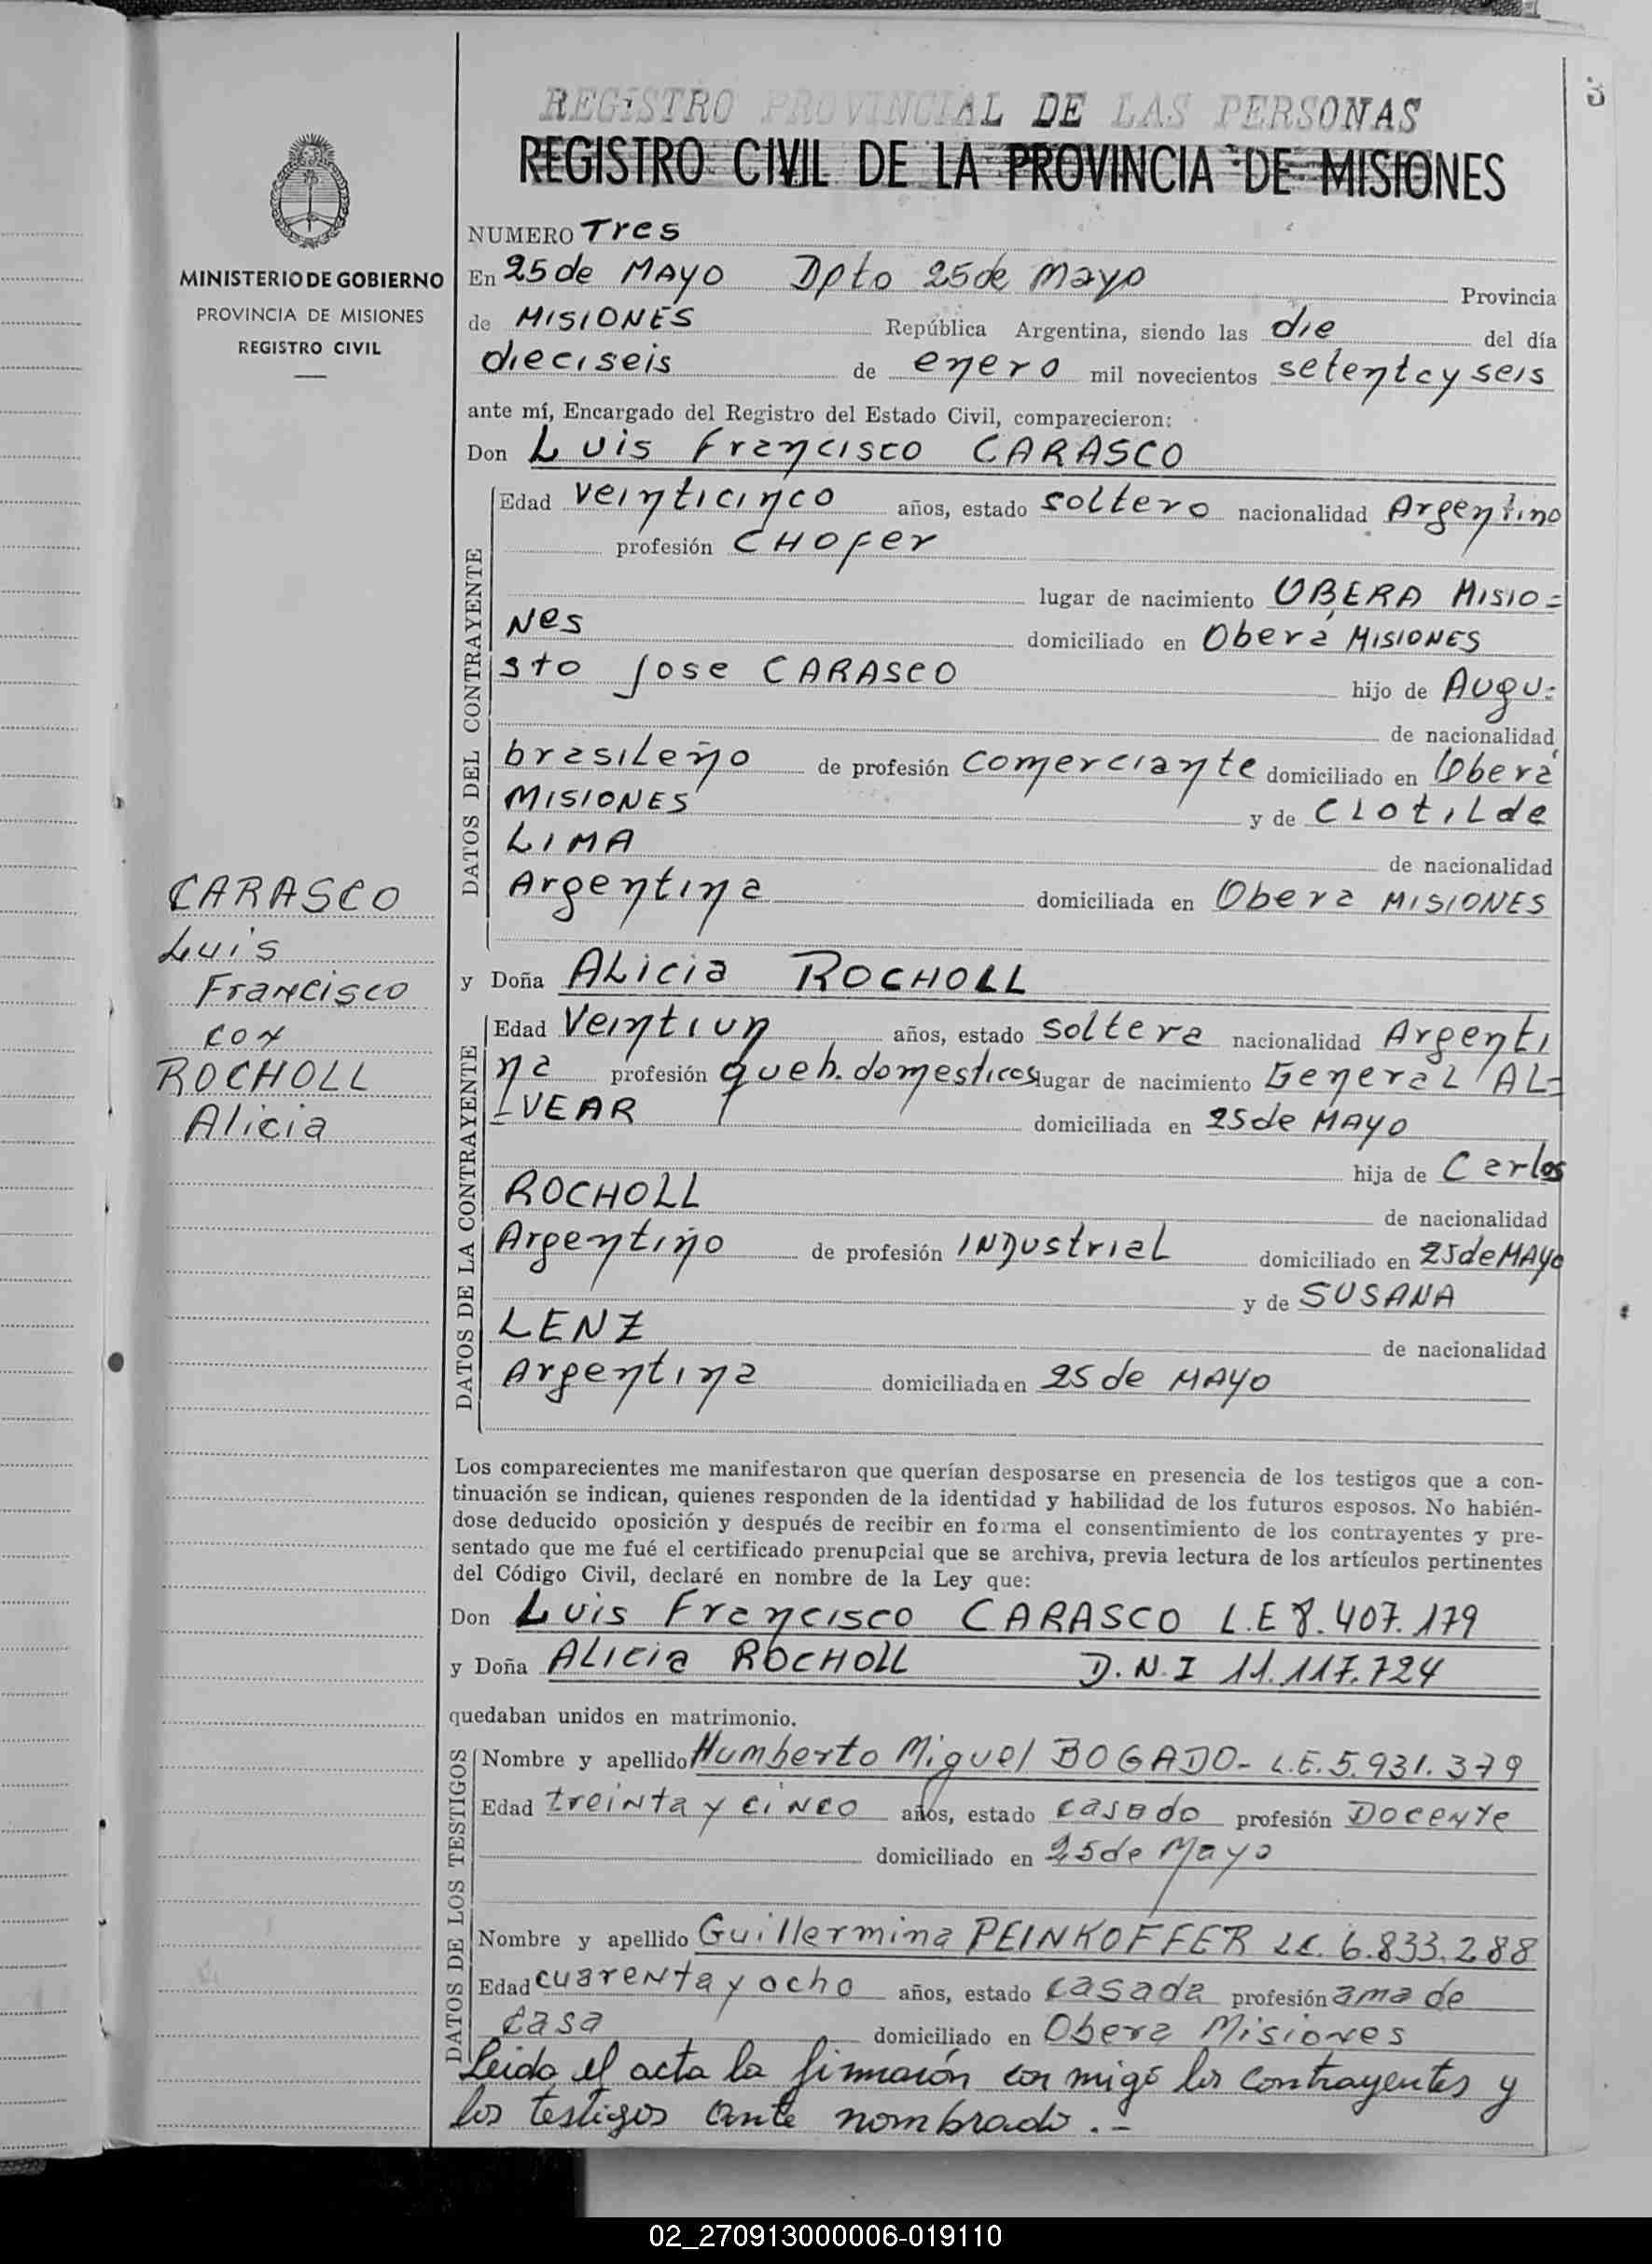 3
REGISTRO PROVINCIAL DE LAS PERSONAS
REGISTRO CIVIL DE LA PROVINCIA DE MISIONES
MINISTERIO DE GOBIERNO
PROVINCIA DE MISIONES
REGISTRO CIVIL
CARASCO
Luis
Francisco
con
ROCHOLL
Alicia
NUMERO Tres
En 25 de MAYO Dpto 25 de Mayo Provincia
de MISIONES República Argentina, siendo las die del día
dieciseis de enero mil novecientos setentay seis
ante mí, Encargado del Registro del Estado Civil, comparecieron:
Don Luis Francisco CARASCO
DATOS DEL CONTRAYENTE
Edad veinticinco años, estado soltero nacionalidad Argentino
profesión CHOfer
lugar de nacimiento OBERA MISIO=
Nes domiciliado en Oberá MISIONES
sto Jose CARASCO hijo de Augu=
de nacionalidad
brasileño de profesión comerciante domiciliado en Oberá
MISIONES y de CLOtiLde
LIMA de nacionalidad
Argentina domiciliada en Obera MISIONES
y Doña ALicia ROCHOLL
DATOS DE LA CONTRAYENTE
Edad Veintiun años, estado soltera nacionalidad Argenti
na profesión queh. domesticos lugar de nacimiento General AL=
VEAR domiciliada en 25 de MAYO
hija de Carlos
ROCHOLL de nacionalidad
Argentino de profesión INDustrial domiciliado en 25 de MAYO
y de SUSANA
LENZ de nacionalidad
Argentina domiciliada en 25 de MAYO
Los comparecientes me manifestaron que querían desposarse en presencia de los testigos que a con-
tinuación se indican, quienes responden de la identidad y habilidad de los futuros esposos. No habién-
dose deducido oposición y después de recibir en forma el consentimiento de los contrayentes y pre-
sentado que me fué el certificado prenupcial que se archiva, previa lectura de los artículos pertinentes
del Código Civil, declaré en nombre de la Ley que:
Don Luis Francisco CARASCO L.E 8.407.179
y Doña ALicia ROCHOLL D.N.I 11.117.724
quedaban unidos en matrimonio.
DATOS DE LOS TESTIGOS
Nombre y apellido Humberto Miguel BOGADO- L.E. 5.931.379
Edad treinta y cinco años, estado casado profesión Docente
domiciliado en 25 de Mayo
Nombre y apellido Guillermina PEINKOFFER LC. 6.833.288
Edad cuarenta y ocho años, estado casada profesión ama de
casa domiciliado en Obera Misiones
Leido el acta la firmarón con migo los contrayentes y
los testigos ante nombrado.-
02_270913000006-019110